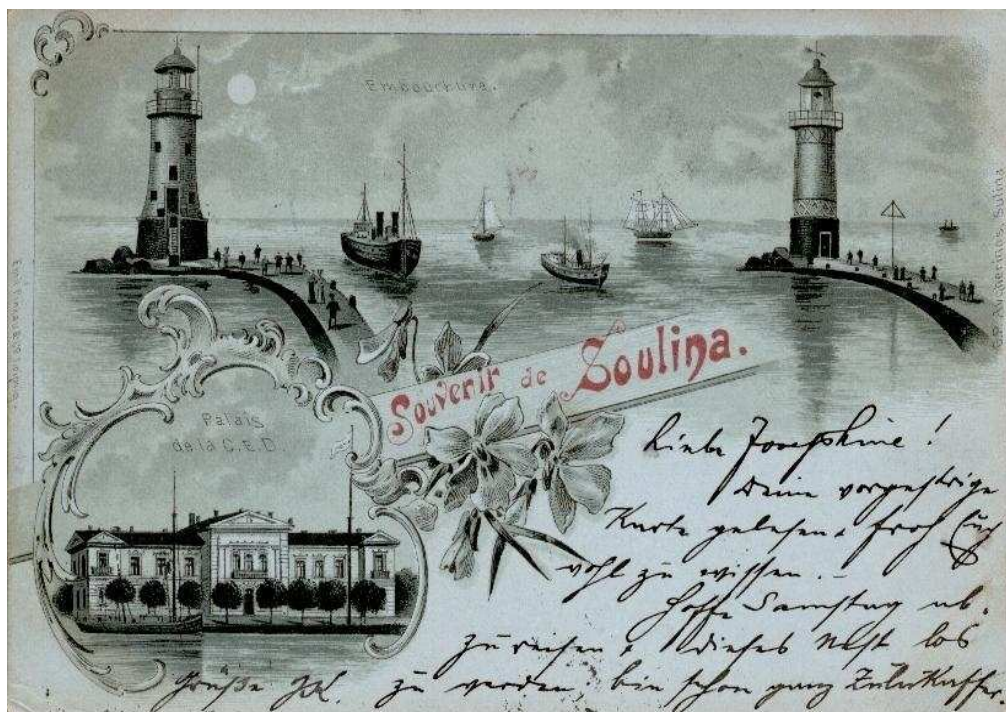 Embouchure.
Souvenir de Soulina.
Palais
de la C.E.D
Liebe Josephine!
Deine vorgestrige
Karte gelesen, froh Euch
wohl zu wissen. –
Hoffe Samstag ab-
zureisen & dieses Nest los
zu werden, bin schon ganz Zulukaffer.
Grüße